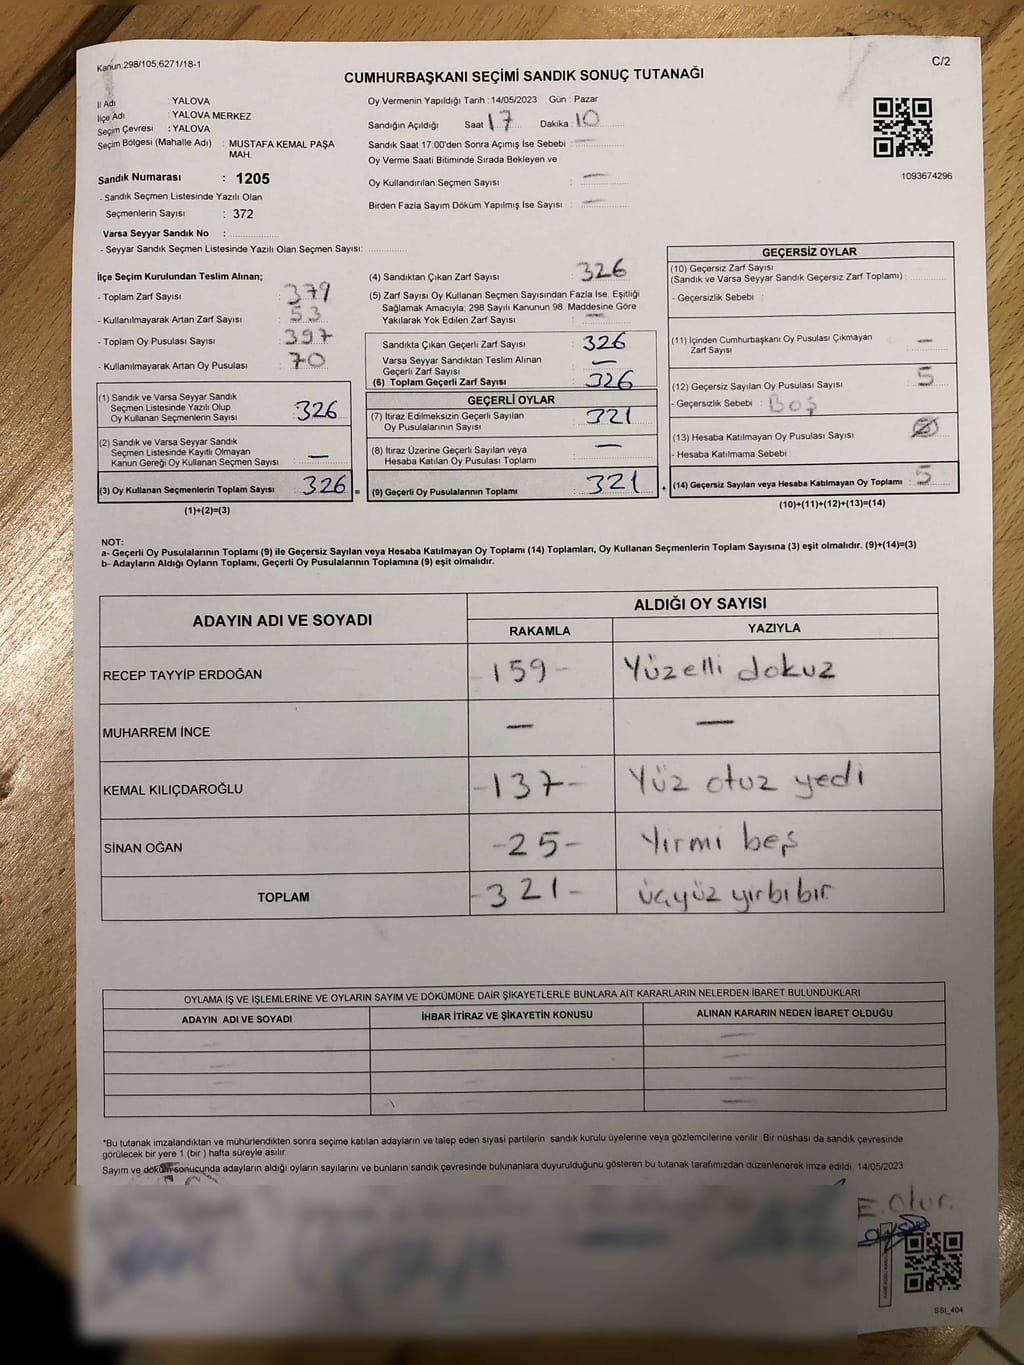 Kanun:298/105,6271/18-1
C/2
CUMHURBAŞKANI SEÇİMİ SANDIK SONUÇ TUTANAĞI
İl Adı : YALOVA
İlçe Adı : YALOVA MERKEZ
Seçim Çevresi : YALOVA
Seçim Bölgesi (Mahalle Adı) : MUSTAFA KEMAL PAŞA MAH.
Sandık Numarası : 1205
- Sandık Seçmen Listesinde Yazılı Olan
Seçmenlerin Sayısı : 372
Varsa Seyyar Sandık No :
- Seyyar Sandık Seçmen Listesinde Yazılı Olan Seçmen Sayısı:
Oy Vermenin Yapıldığı Tarih :14/05/2023 Gün : Pazar
Sandığın Açıldığı Saat 17 Dakika 10
Sandık Saat 17:00'den Sonra Açımış İse Sebebi : —
Oy Verme Saati Bitiminde Sırada Bekleyen ve
Oy Kullandırılan Seçmen Sayısı : —
Birden Fazla Sayım Döküm Yapılmış İse Sayısı : —
1093674296
İlçe Seçim Kurulundan Teslim Alınan;
- Toplam Zarf Sayısı : 379
- Kullanılmayarak Artan Zarf Sayısı : 53
- Toplam Oy Pusulası Sayısı : 397
- Kullanılmayarak Artan Oy Pusulası : 70
(1) Sandık ve Varsa Seyyar Sandık
Seçmen Listesinde Yazılı Olup
Oy Kullanan Seçmenlerin Sayısı : 326
(2) Sandık ve Varsa Seyyar Sandık
Seçmen Listesinde Kayıtlı Olmayan
Kanun Gereği Oy Kullanan Seçmen Sayısı : —
(3) Oy Kullanan Seçmenlerin Toplam Sayısı : 326 =
(1)+(2)=(3)
(4) Sandıktan Çıkan Zarf Sayısı : 326
(5) Zarf Sayısı Oy Kullanan Seçmen Sayısından Fazla İse, Eşitliği
Sağlamak Amacıyla; 298 Sayılı Kanunun 98. Maddesine Göre
Yakılarak Yok Edilen Zarf Sayısı : —
Sandıkta Çıkan Geçerli Zarf Sayısı : 326
Varsa Seyyar Sandıktan Teslim Alınan
Geçerli Zarf Sayısı : —
(6) Toplam Geçerli Zarf Sayısı : 326
GEÇERLİ OYLAR
(7) İtiraz Edilmeksizin Geçerli Sayılan
Oy Pusulalarının Sayısı : 321
(8) İtiraz Üzerine Geçerli Sayılan veya
Hesaba Katılan Oy Pusulası Toplamı : —
(9) Geçerli Oy Pusulalarının Toplamı : 321 +
GEÇERSİZ OYLAR
(10) Geçersiz Zarf Sayısı
(Sandık ve Varsa Seyyar Sandık Geçersiz Zarf Toplamı) :
- Geçersizlik Sebebi :
(11) İçinden Cumhurbaşkanı Oy Pusulası Çıkmayan
Zarf Sayısı : —
(12) Geçersiz Sayılan Oy Pusulası Sayısı : 5
- Geçersizlik Sebebi : Boş
(13) Hesaba Katılmayan Oy Pusulası Sayısı :
- Hesaba Katılmama Sebebi :
(14) Geçersiz Sayılan veya Hesaba Katılmayan Oy Toplamı : 5
(10)+(11)+(12)+(13)=(14)
NOT:
a- Geçerli Oy Pusulalarının Toplamı (9) ile Geçersiz Sayılan veya Hesaba Katılmayan Oy Toplamı (14) Toplamları, Oy Kullanan Seçmenlerin Toplam Sayısına (3) eşit olmalıdır. (9)+(14)=(3)
b- Adayların Aldığı Oyların Toplamı, Geçerli Oy Pusulalarının Toplamına (9) eşit olmalıdır.
ADAYIN ADI VE SOYADI
ALDIĞI OY SAYISI
RAKAMLA YAZIYLA
RECEP TAYYİP ERDOĞAN 159- Yüzelli dokuz
MUHARREM İNCE — —
KEMAL KILIÇDAROĞLU -137- Yüz otuz yedi
SİNAN OĞAN -25- Yirmi beş
TOPLAM -321- üçyüz yirbibir
OYLAMA İŞ VE İŞLEMLERİNE VE OYLARIN SAYIM VE DÖKÜMÜNE DAİR ŞİKAYETLERLE BUNLARA AİT KARARLARIN NELERDEN İBARET BULUNDUKLARI
ADAYIN ADI VE SOYADI İHBAR İTİRAZ VE ŞİKAYETİN KONUSU ALINAN KARARIN NEDEN İBARET OLDUĞU
*Bu tutanak imzalandıktan ve mühürlendikten sonra seçime katılan adayların ve talep eden siyasi partilerin sandık kurulu üyelerine veya gözlemcilerine verilir. Bir nüshası da sandık çevresinde
görülecek bir yere 1 (bir ) hafta süreyle asılır.
Sayım ve döküm sonucunda adayların aldığı oyların sayılarını ve bunların sandık çevresinde bulunanlara duyurulduğunu gösteren bu tutanak tarafımızdan düzenlenerek imza edildi. 14/05/2023
E. Olur.
SSI_404